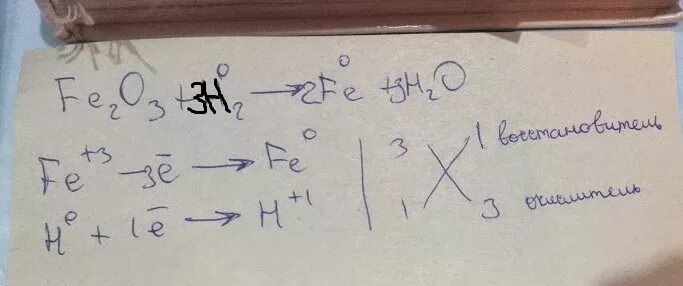 Fe₂O₃ + 3H₂⁰ → 2Fe⁰ + 3H₂O
Fe⁺³ - 3ē → Fe⁰ | 3 1 восстановитель
H⁰ + 1ē → H⁺¹ | 1 3 окислитель